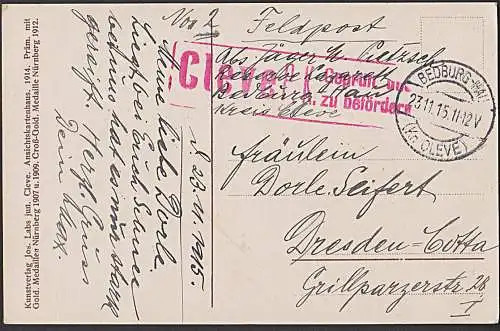 Kunstverlag Jos. Labs jun. Cleve. Ansichtskartenhaus. 1914. Präm. mit
Gold. Medaillen Nürnberg 1907 u. 1909. Groß-Gold. Medaille Nürnberg 1912.
No 2
d. 23.11.1915.
Meine liebe Dorle.
Liegt bei Euch Schnee
bei uns hat es nur stark
gereift. Herzl. Gruss
Dein Max.
Feldpost
Abs. Jäger M. Pietzsch
Reserve Lazarett
Bedburg Hau
Kreis Cleve
Cleve 1 Geprüft und
zu befördern
BEDBURG-HAU
23.11.15.11-12V
(Kr. CLEVE)
Fräulein
Dorle Seifert
Dresden-Cotta
Grillparzerstr. 26
I